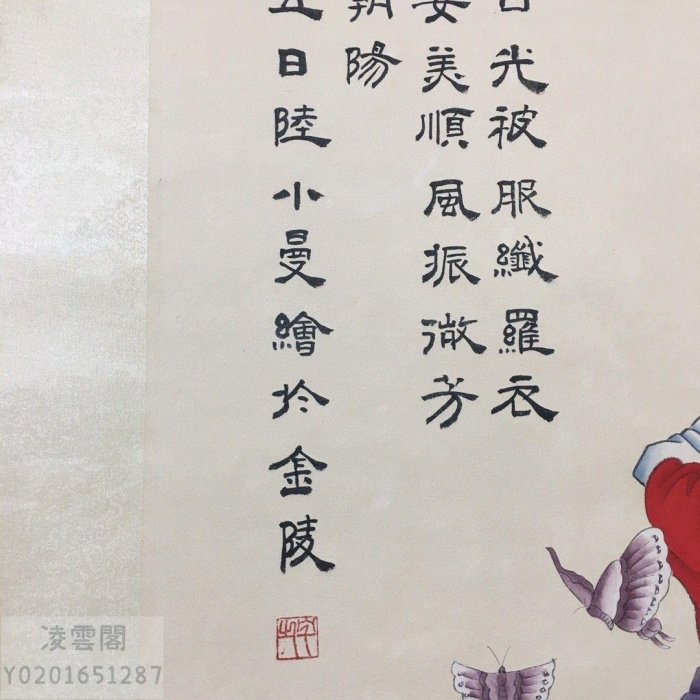 日光被服纖羅衣
姿美順風振微芳
朝陽
五日陸小曼繪於金陵
凌雲閣
Y0201651287